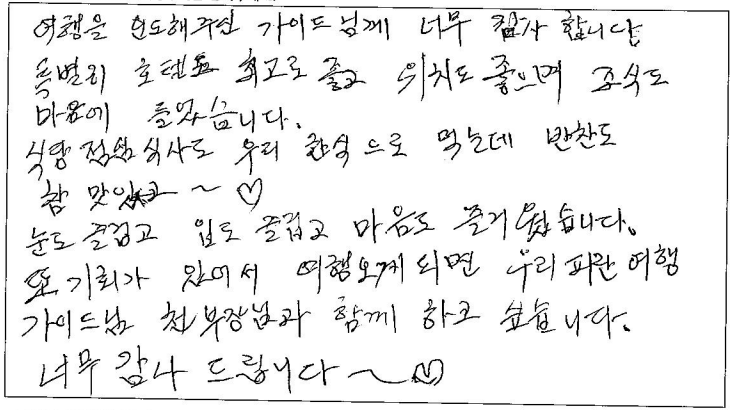 여행을 인도해주신 가이드님께 너무 감사 합니다
특별히 호텐도 최고로 좋고 위치도 좋으며 조식도
마음에 들었습니다.
식당 점심식사도 우리 한식으로 먹는데 반찬도
참 맛있고 ~ ♡
눈도 즐겁고 입도 즐겁고 마음도 즐거웠습니다.
또 기회가 있어서 여행오게 되면 우리 파란 여행
가이드님 천부장님과 함께 하고 싶습니다.
너무 감사 드립니다 ~ ♡